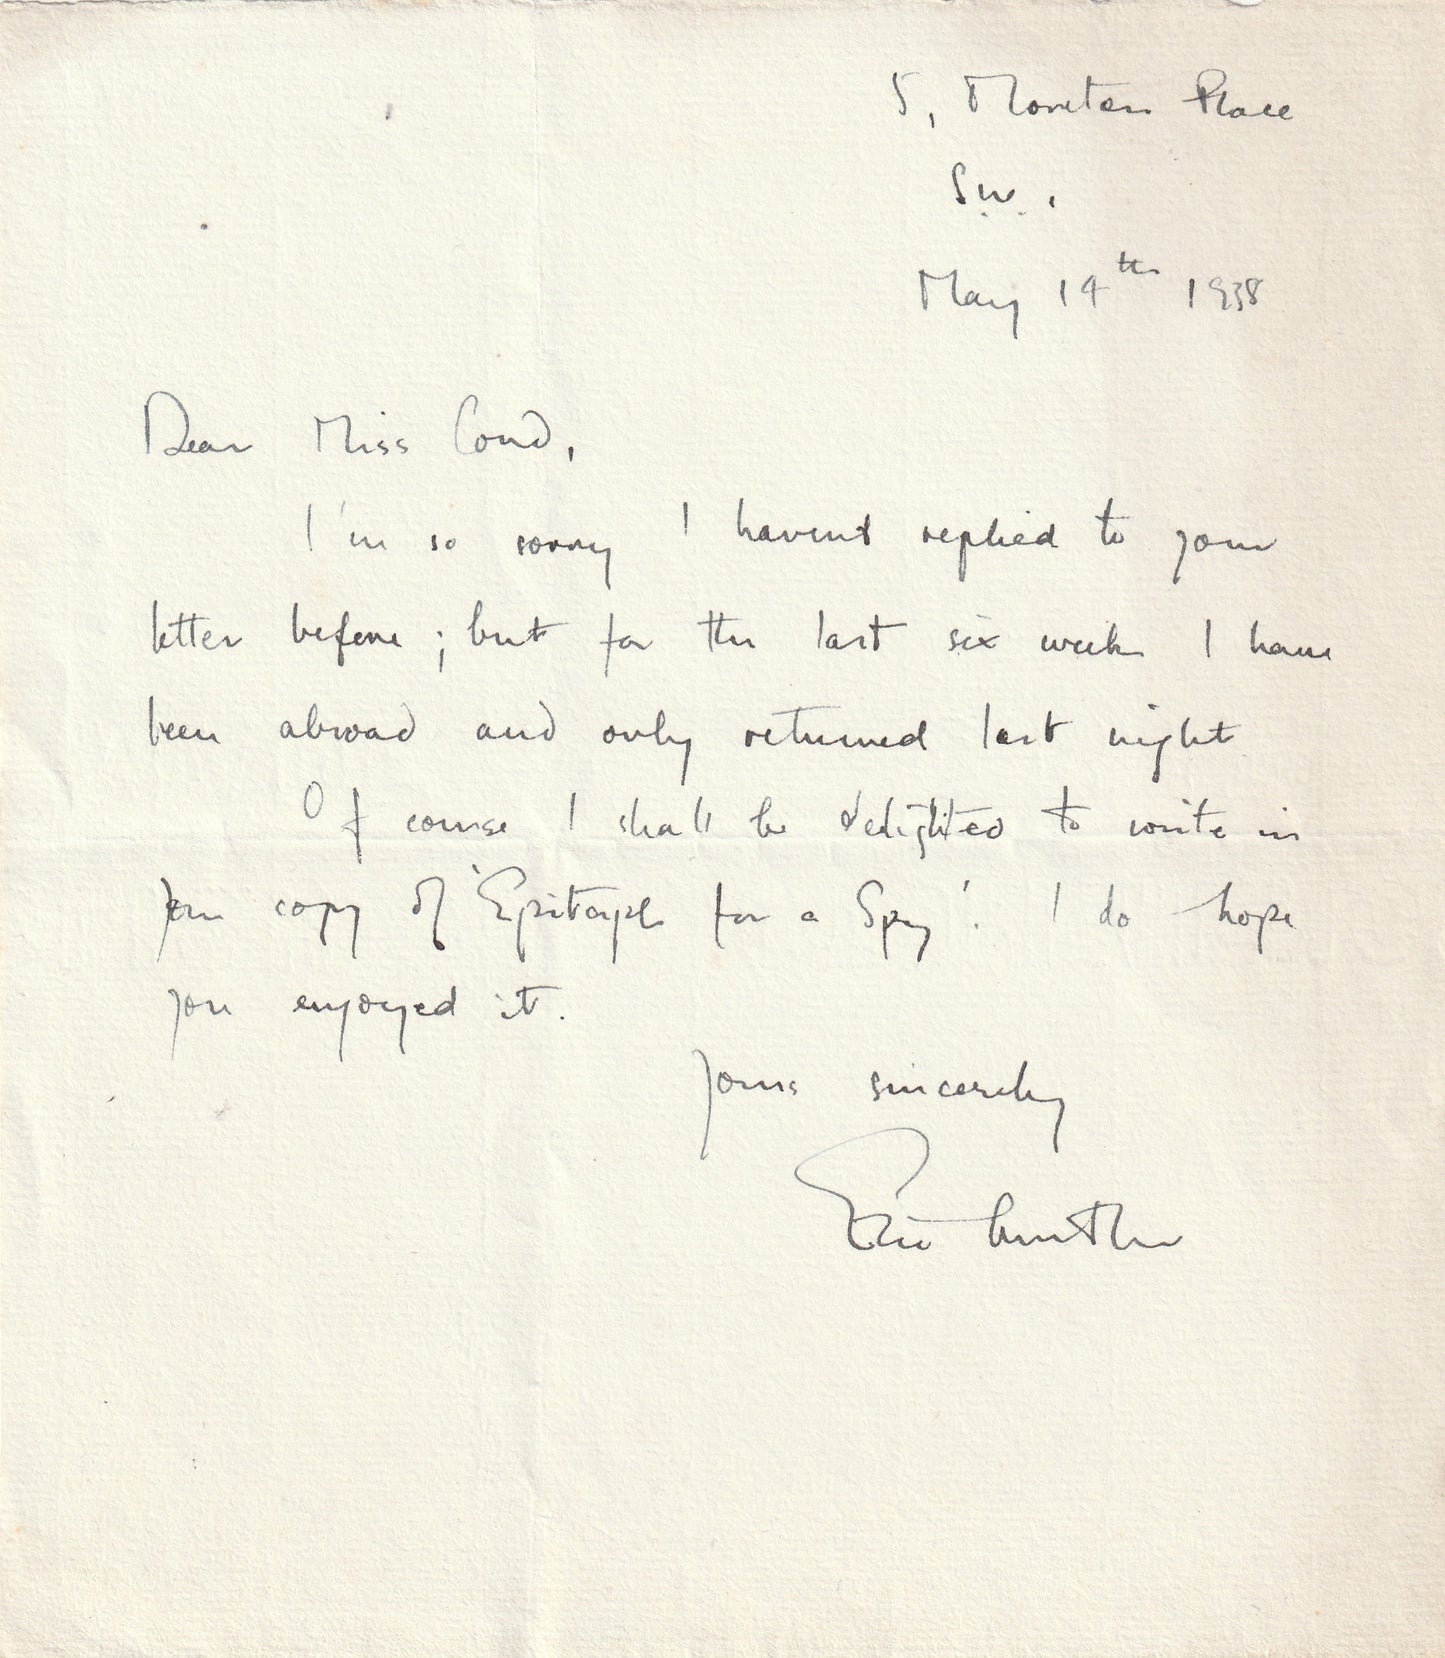 5, Moreton Place
S.W.1
May 14th 1938
Dear Miss Cond,
I'm so sorry I haven't replied to your
letter before; but for the last six weeks I have
been abroad and only returned last night
Of course I shall be delighted to write in
your copy of 'Epitaph for a Spy'. I do hope
you enjoyed it.
Yours sincerely
Eric Ambler